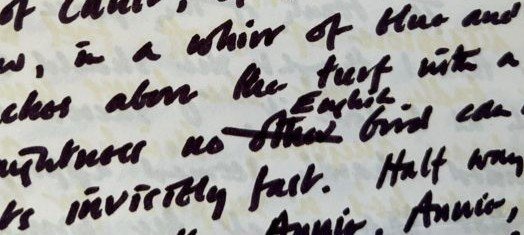 of
w, in a whirr of blue and
ches above the turf with a
English
ughtness no other bird can
ts invisibly fast. Half way
Annie, Annie,